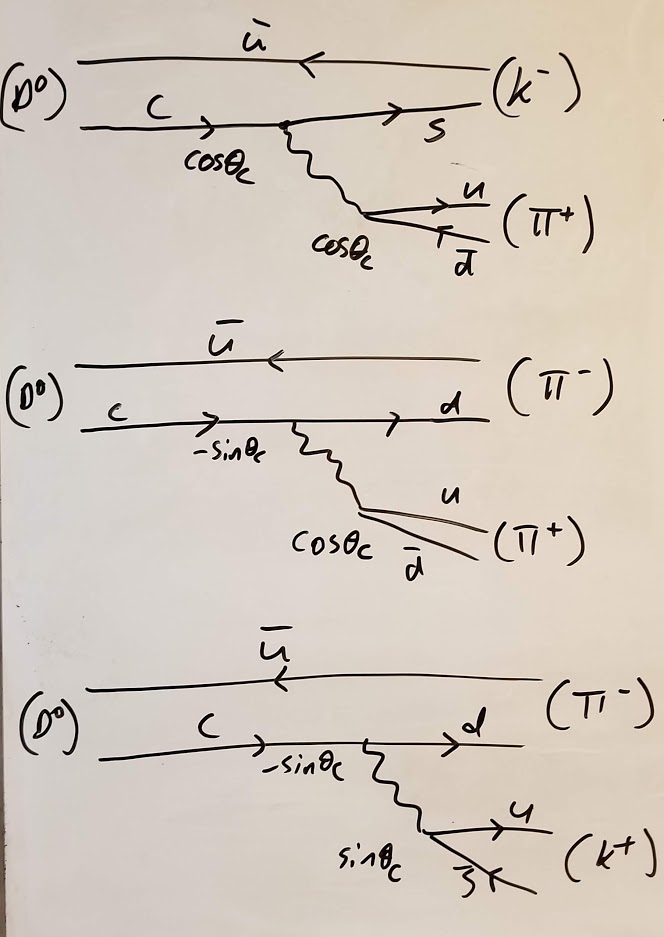 ū
(D⁰) (k⁻)
c s
cosθc
u
(π⁺)
cosθc d̄
ū
(D⁰) (π⁻)
c d
-sinθc
u
cosθc (π⁺)
d̄
ū
(D⁰) (π⁻)
c d
-sinθc
u
sinθc (k⁺)
s̄